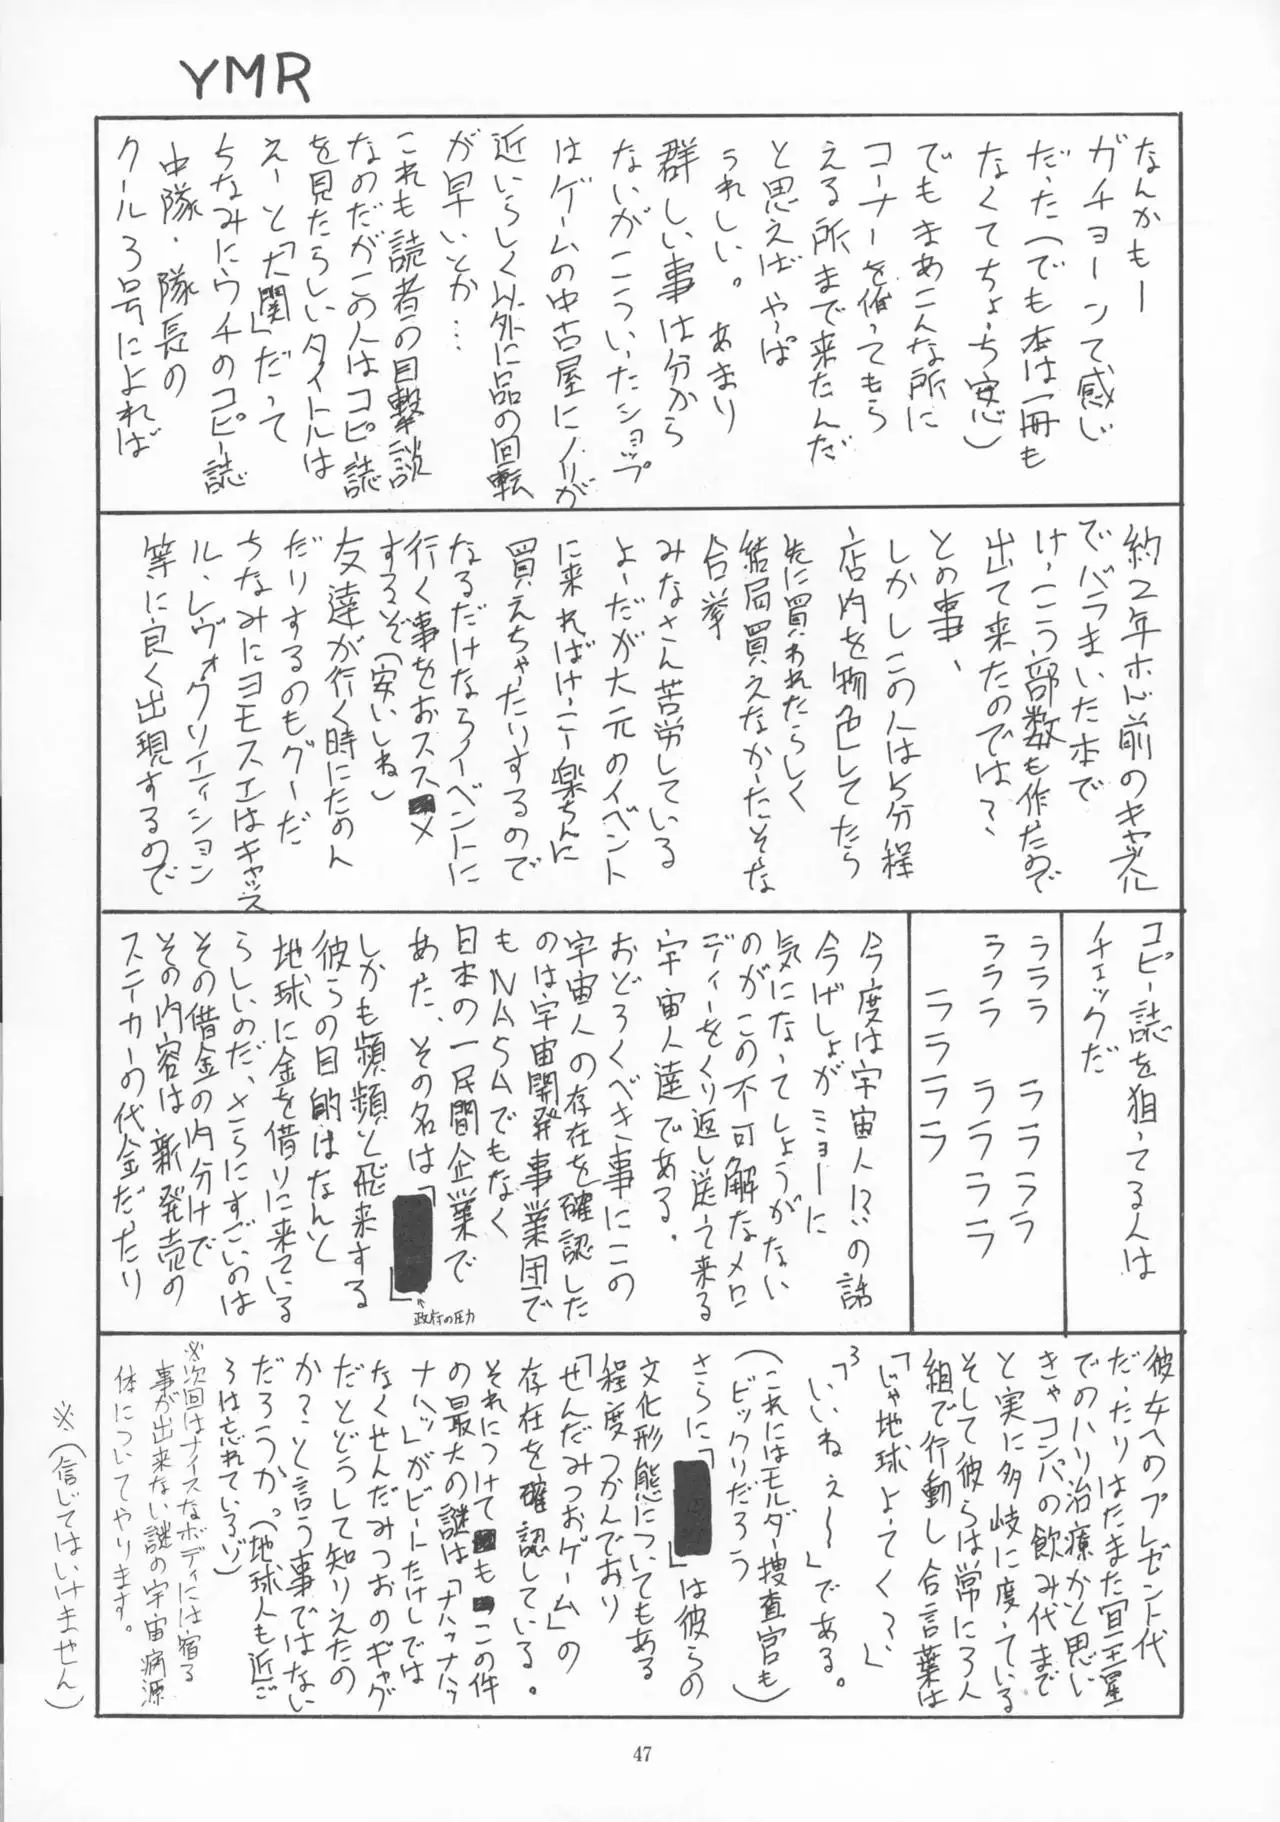 YMR
なんかもー
ガチョーンて感じ
だった(でも本は一冊も
なくてちょっち安心)
でもまあこんな所に
コーナーを作ってもら
える所まで来たんだ
と思えばやっぱ
うれしい。あまり
群しい事は分から
ないがこういったショップ
はゲームの中古屋にノリが
近いらしく以外に品の回転
が早いとか…
これも読者の目撃談
なのだがこの人はコピー誌
を見たらしいタイトルは
えーと「大関」だって
ちなみにウチのコピー誌
中隊・隊長の
クール3号によれば
約2年ホド前のキャプル
でバラまいた本で
けっこう部数も作ったので
出て来たのでは?
との事、
しかしこの人は5分程
店内を物色してたら
先に買われたらしく
結局買えなかったそな
合掌
みなさん苦労している
よーだが大元のイベント
に来ればけっこー楽ちんに
買えちゃったりするので
なるだけならイベントに
行く事をおススメ
するぞ(安いしね)
友達が行く時にたのん
だりするのもグーだ
ちなみにヨモスエはキャッス
ル、レヴォクリエイション
等に良く出現するので
コピー誌を狙ってる人は
チェックだ
ラララ ラララララ
ラララ ラララララ
ラララララ
今度は宇宙人!?の話
今げしょがミョーに
気になってしょうがない
のがこの不可解なメロ
ディーをくり返し送って来る
宇宙人達である。
おどろくべき事にこの
宇宙人の存在を確認した
のは宇宙開発事業団で
もNASAでもなく
日本の一民間企業で
あった、その名は「 」
↑政府の圧力
しかも頻頻と飛来する
彼らの目的はなんと
地球に金を借りに来ている
らしいのだ、さらにすごいのは
その借金の内分けで
その内容は新発売の
ステカーの代金だったり
彼女へのプレゼント代
だったりはたまた冥王星
でのハリ治療かと思い
きゃコンパの飲み代まで
と実に多岐に度っている
そして彼らは常に3人
組で行動し合言葉は
「じゃ地球よってく?」
「いいねぇ〜」である。
(これにはモルダー捜査官も
ビックリだろう)
さらに「 」は彼らの
文化形態についてもある
程度つかんでおり
「せんだみつおゲーム」の
存在を確認している。
それにつけても この件
の最大の謎は「ナハッナハッ
ナハッ」がビートたけしでは
なくせんだみつおのギャグ
だとどうして知りえたの
か?と言う事ではない
だろうか。(地球人も近ご
ろは忘れているゾ)
※次回はナイスなボディには宿る
事が出来ない謎の宇宙病源
体についてやります。
※(信じてはいけません)
47